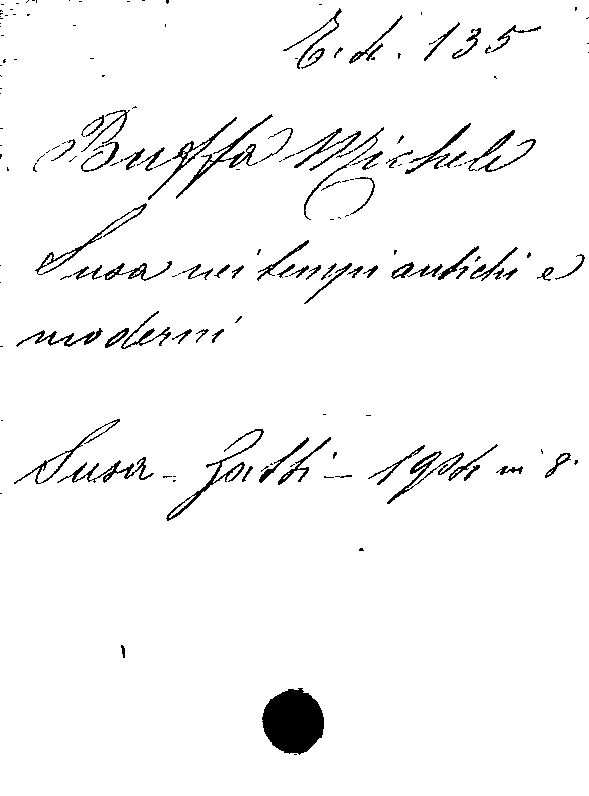 E. d. 135
Buffa Michele
Susa nei tempi antichi e
moderni
Susa - Gatti - 1904 in 8.